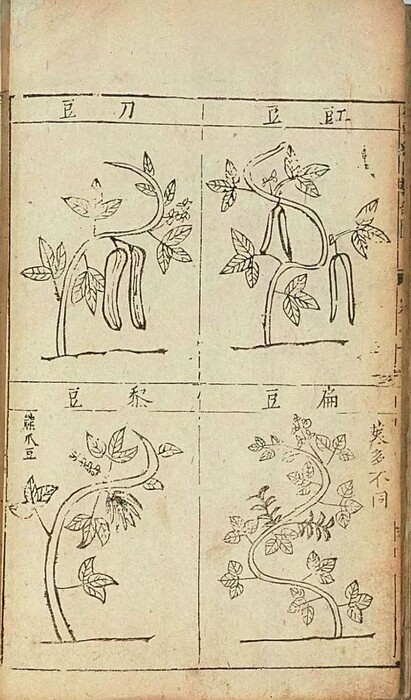 豇豆
刀豆
扁豆
莢多不同
黎豆
爪豆